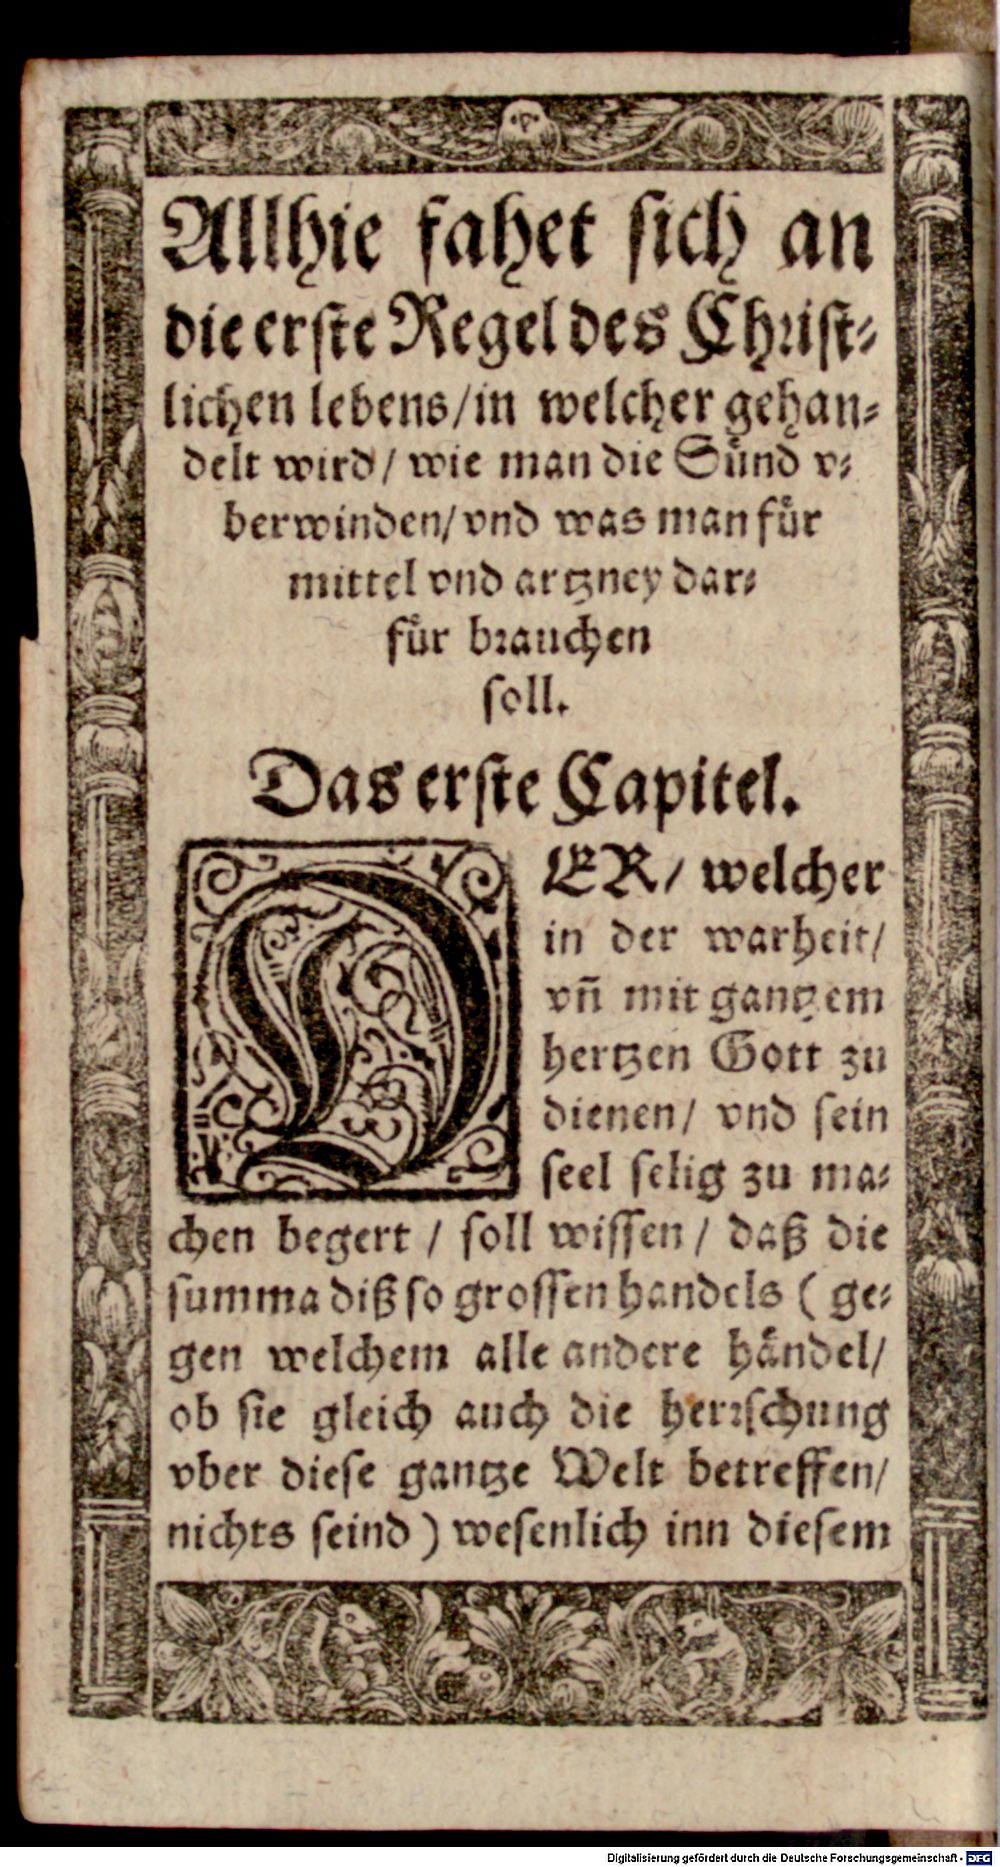 Allhie fahet sich an
die erste Regel des Christ-
lichen lebens/in welcher gehan-
delt wird/ wie man die Sünd v-
berwinden/vnd was man für
mittel vnd artzney dar-
für brauchen
soll.
Das erste Capitel.
DER/ welcher
in der warheit/
vñ mit gantzem
hertzen Gott zu
dienen/ vnd sein
seel selig zu ma-
chen begert / soll wissen / daß die
summa diß so grossen handels ( ge-
gen welchem alle andere händel/
ob sie gleich auch die herrschung
vber diese gantze Welt betreffen/
nichts seind ) wesenlich inn diesem
Digitalisierung gefördert durch die Deutsche Forschungsgemeinschaft - DFG